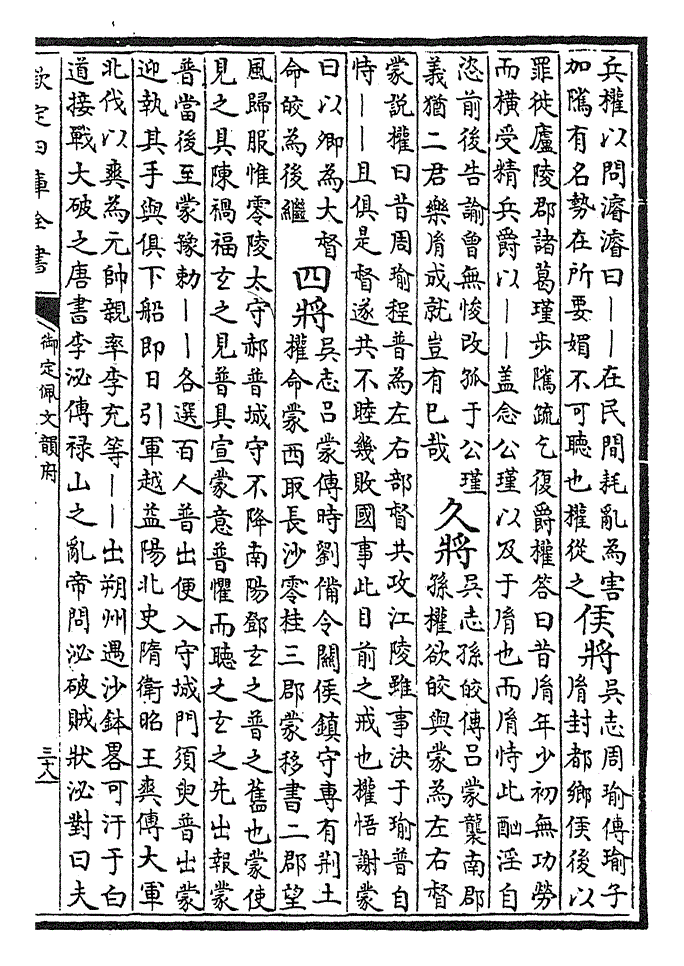 兵權以問濬濬曰——在民間耗亂為害
加隲有名勢在所要媚不可聽也權從之
侯將
吳志周瑜傳瑜子
胤封都鄉侯後以
罪徙廬陵郡諸葛瑾步隲疏乞復爵權答曰昔胤年少初無功勞
而橫受精兵爵以——盖念公瑾以及于胤也而胤恃此酗淫自
恣前後告諭曾無悛改孤于公瑾
義猶二君樂胤成就豈有已哉
久將
吳志孫皎傳呂蒙襲南郡
孫權欲皎與蒙為左右督
蒙說權曰昔周瑜程普為左右部督共攻江陵雖事決于瑜普自
恃——且俱是督遂共不睦幾敗國事此目前之戒也權悟謝蒙
曰以卿為大督
命皎為後繼
四將
吳志呂蒙傳時劉備令關侯鎮守專有荆土
權命蒙西取長沙零桂三郡蒙移書二郡望
風歸服惟零陵太守郝普城守不降南陽鄧玄之普之舊也蒙使
見之具陳禍福玄之見普具宣蒙意普懼而聽之玄之先出報蒙
普當後至蒙豫勅——各選百人普出便入守城門須臾普出蒙
迎執其手與俱下船即日引軍越益陽北史隋衛昭王爽傳大軍
北伐以爽為元帥親率李充等——出朔州遇沙鉢畧可汗于白
道接戰大破之唐書李泌傳祿山之亂帝問泌破賊狀泌對曰夫
欽定四庫全書
御定佩文韻府
三十八